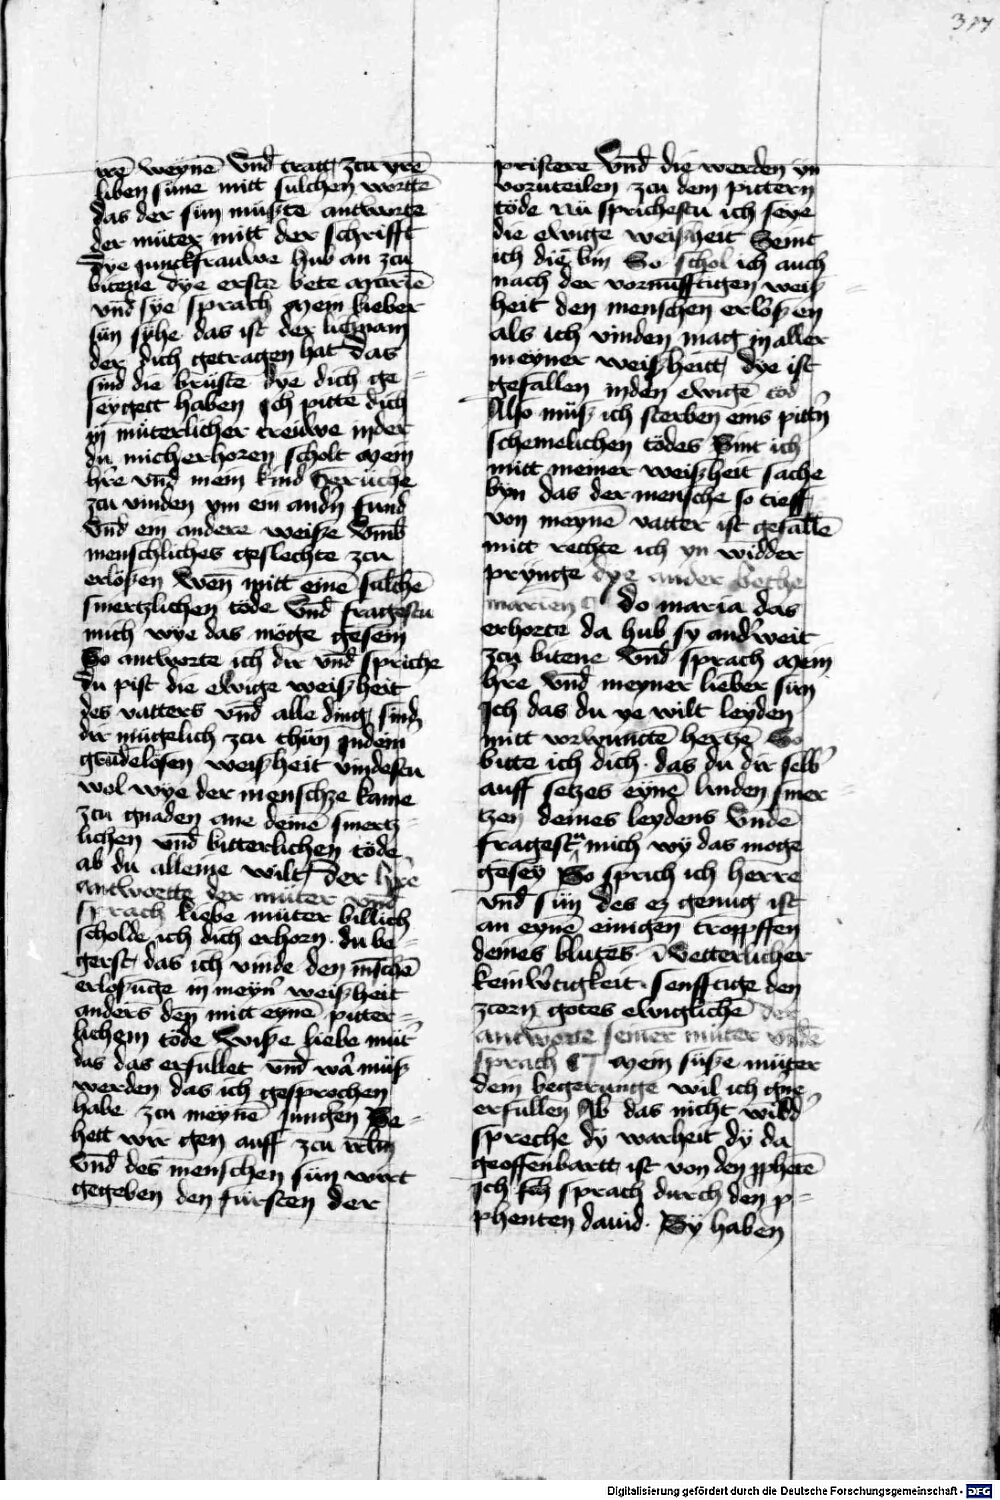 317
wē weynē Vnd tratt zcu yrē
liben sune mitt sulchen wortē
das der sün müste antworte
der müter mitt der schrifft
Dye junckfrauwe hub an zcu
bitene dye erste bete marie
vnd sye sprach Mein lieber
sün syhe das ist der lichnam
der dich getragen hat Das
sind die brüste dye dich ge=
seygett haben Ich pitte dich
in müterlicher treuwe inder
du mich erhoren scholt Mein
hr̄e vnd mein kind Geruche
zcu vinden ym ein andn̄ fund
Vnd ein andere weiße Vmb
menschliches geslechte zcu
erlößen Wen mitt einē sulchē
smertzlichen töde Vnd fragestu
mich wye das möge gesein
So antworte ich dir vnd spriche
Du pist die ewige weißheit
des vatters vnd alle ding sind
dir mügelich zcu thün Indein
grūdelösen weißheit vindestu
wol wye der menschze kame
zcu gnaden ane deinē smertz=
lichen vnd bitterlichen töde
ab du alleine wilt Der hr̄e
antwortte der müter vnd
sprach liebe müter billich
scholde ich dich erhorn · du be=
gerst das ich vinde den mēschē
erlosunge in meyn̄ weißheit
anders den mitt eynē pitter=
lichem töde Wiße liebe müt̄
das das erfullet vnd wā müß
werden das ich gesprochen
habe zcu meynē Jungen Se=
hett wir gen auff zcu irlm̄
Vnd des menschen sün wirt
gegeben den fürsten der
pristere Vnd die werden yn
vorurteilen zcu dem pittern
töde Nu sprichestu ich seye
die ewige weißheit Seint
ich die bin So schol ich auch
nach der vornufftigen weiß=
heit den menschen erlößen
als ich vinden mag in aller
meyner weißheitt dye ist
gefallen inden ewigē tod
Also müß ich sterben eins pittn̄
schemelichen tödes Sint ich
mitt meiner weißheit sache
byn das der mensche so tieff
von meynē vatter ist gefallē
mitt rechte ich yn widder
prynge dye ander bethe
marien do maria das
erhorte da hub sy andˀweit
zcu bitene Vnd sprach Mein
hr̄e vnd meyner lieber sün
Ich das du ye wilt leyden
mitt vorwuncte hertzē So
bitte ich dich · das du dir selbˀ
auff setzes eynē linden smer=
tzen deines leydens Vnde
fragestu mich wy das moge
gesey So sprich ich herre
vnd sün des ez genug ist
an eynē einigen troppffen
deines blutes · Vetterlicher
keinwˀtigkeit · senfftige den
zcorn gotes ewiglichē der
antworte seiner müter vnde
sprach Mein süße müter
dein begerunge wil ich gne
erfullen Ab das nicht widdˀ
spreche dy warheit dy da
geoffenbartt ist von den pphetē
Ich sprach durch den p=
phenten dauid · Sy haben
Digitalisierung gefördert durch die Deutsche Forschungsgemeinschaft - DFG